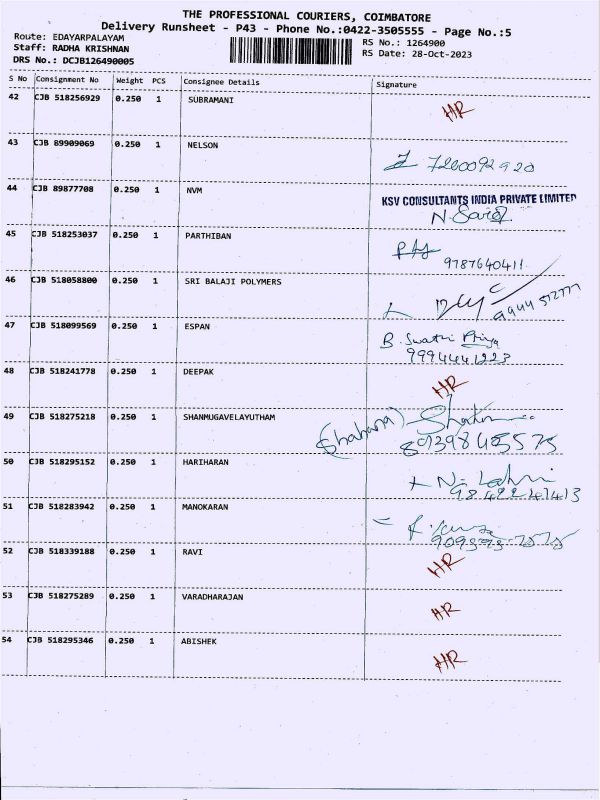 THE PROFESSIONAL COURIERS, COIMBATORE
Delivery Runsheet - P43 - Phone No.:0422-3505555 - Page No.:5
Route: EDAYARPALAYAM
RS No.: 1264900
Staff: RADHA KRISHNAN
RS Date: 28-Oct-2023
DRS No.: DCJB126490005
S No Consignment No Weight PCS Consignee Details Signature
42 CJB 518256929 0.250 1 SUBRAMANI HR
43 CJB 89909069 0.250 1 NELSON 7200092920
44 CJB 89877708 0.250 1 NVM KSV CONSULTANTS INDIA PRIVATE LIMITED
45 CJB 518253037 0.250 1 PARTHIBAN 9787640411
46 CJB 518058800 0.250 1 SRI BALAJI POLYMERS
47 CJB 518099569 0.250 1 ESPAN B. Swathi Priya
9994441223
48 CJB 518241778 0.250 1 DEEPAK HR
49 CJB 518275218 0.250 1 SHANMUGAVELAYUTHAM (Shahana)
50 CJB 518295152 0.250 1 HARIHARAN
51 CJB 518283942 0.250 1 MANOKARAN
52 CJB 518339188 0.250 1 RAVI HR
53 CJB 518275289 0.250 1 VARADHARAJAN HR
54 CJB 518295346 0.250 1 ABISHEK HR